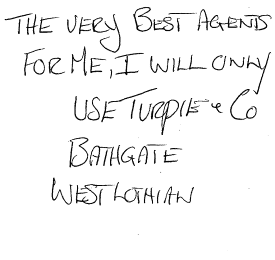 THE VERY BEST AGENTS
FOR ME, I WILL ONLY
USE TURPIE & CO
BATHGATE
WEST LOTHIAN